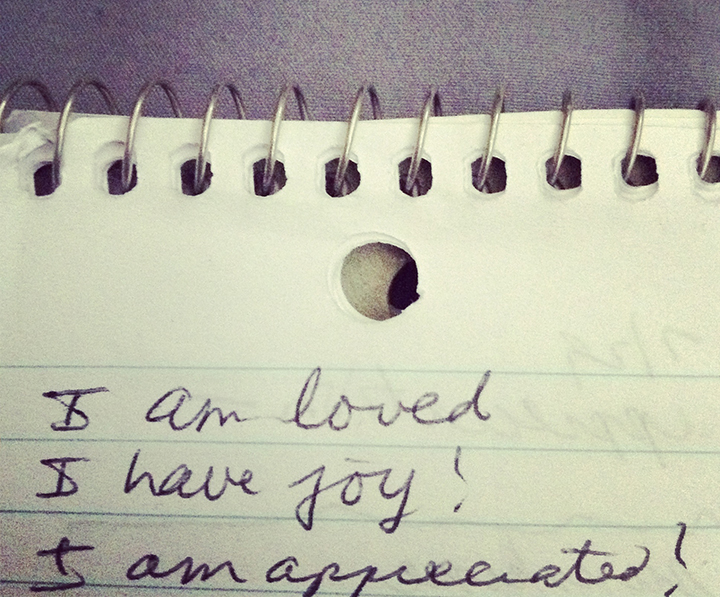 I am loved
I have joy!
I am appreciated!